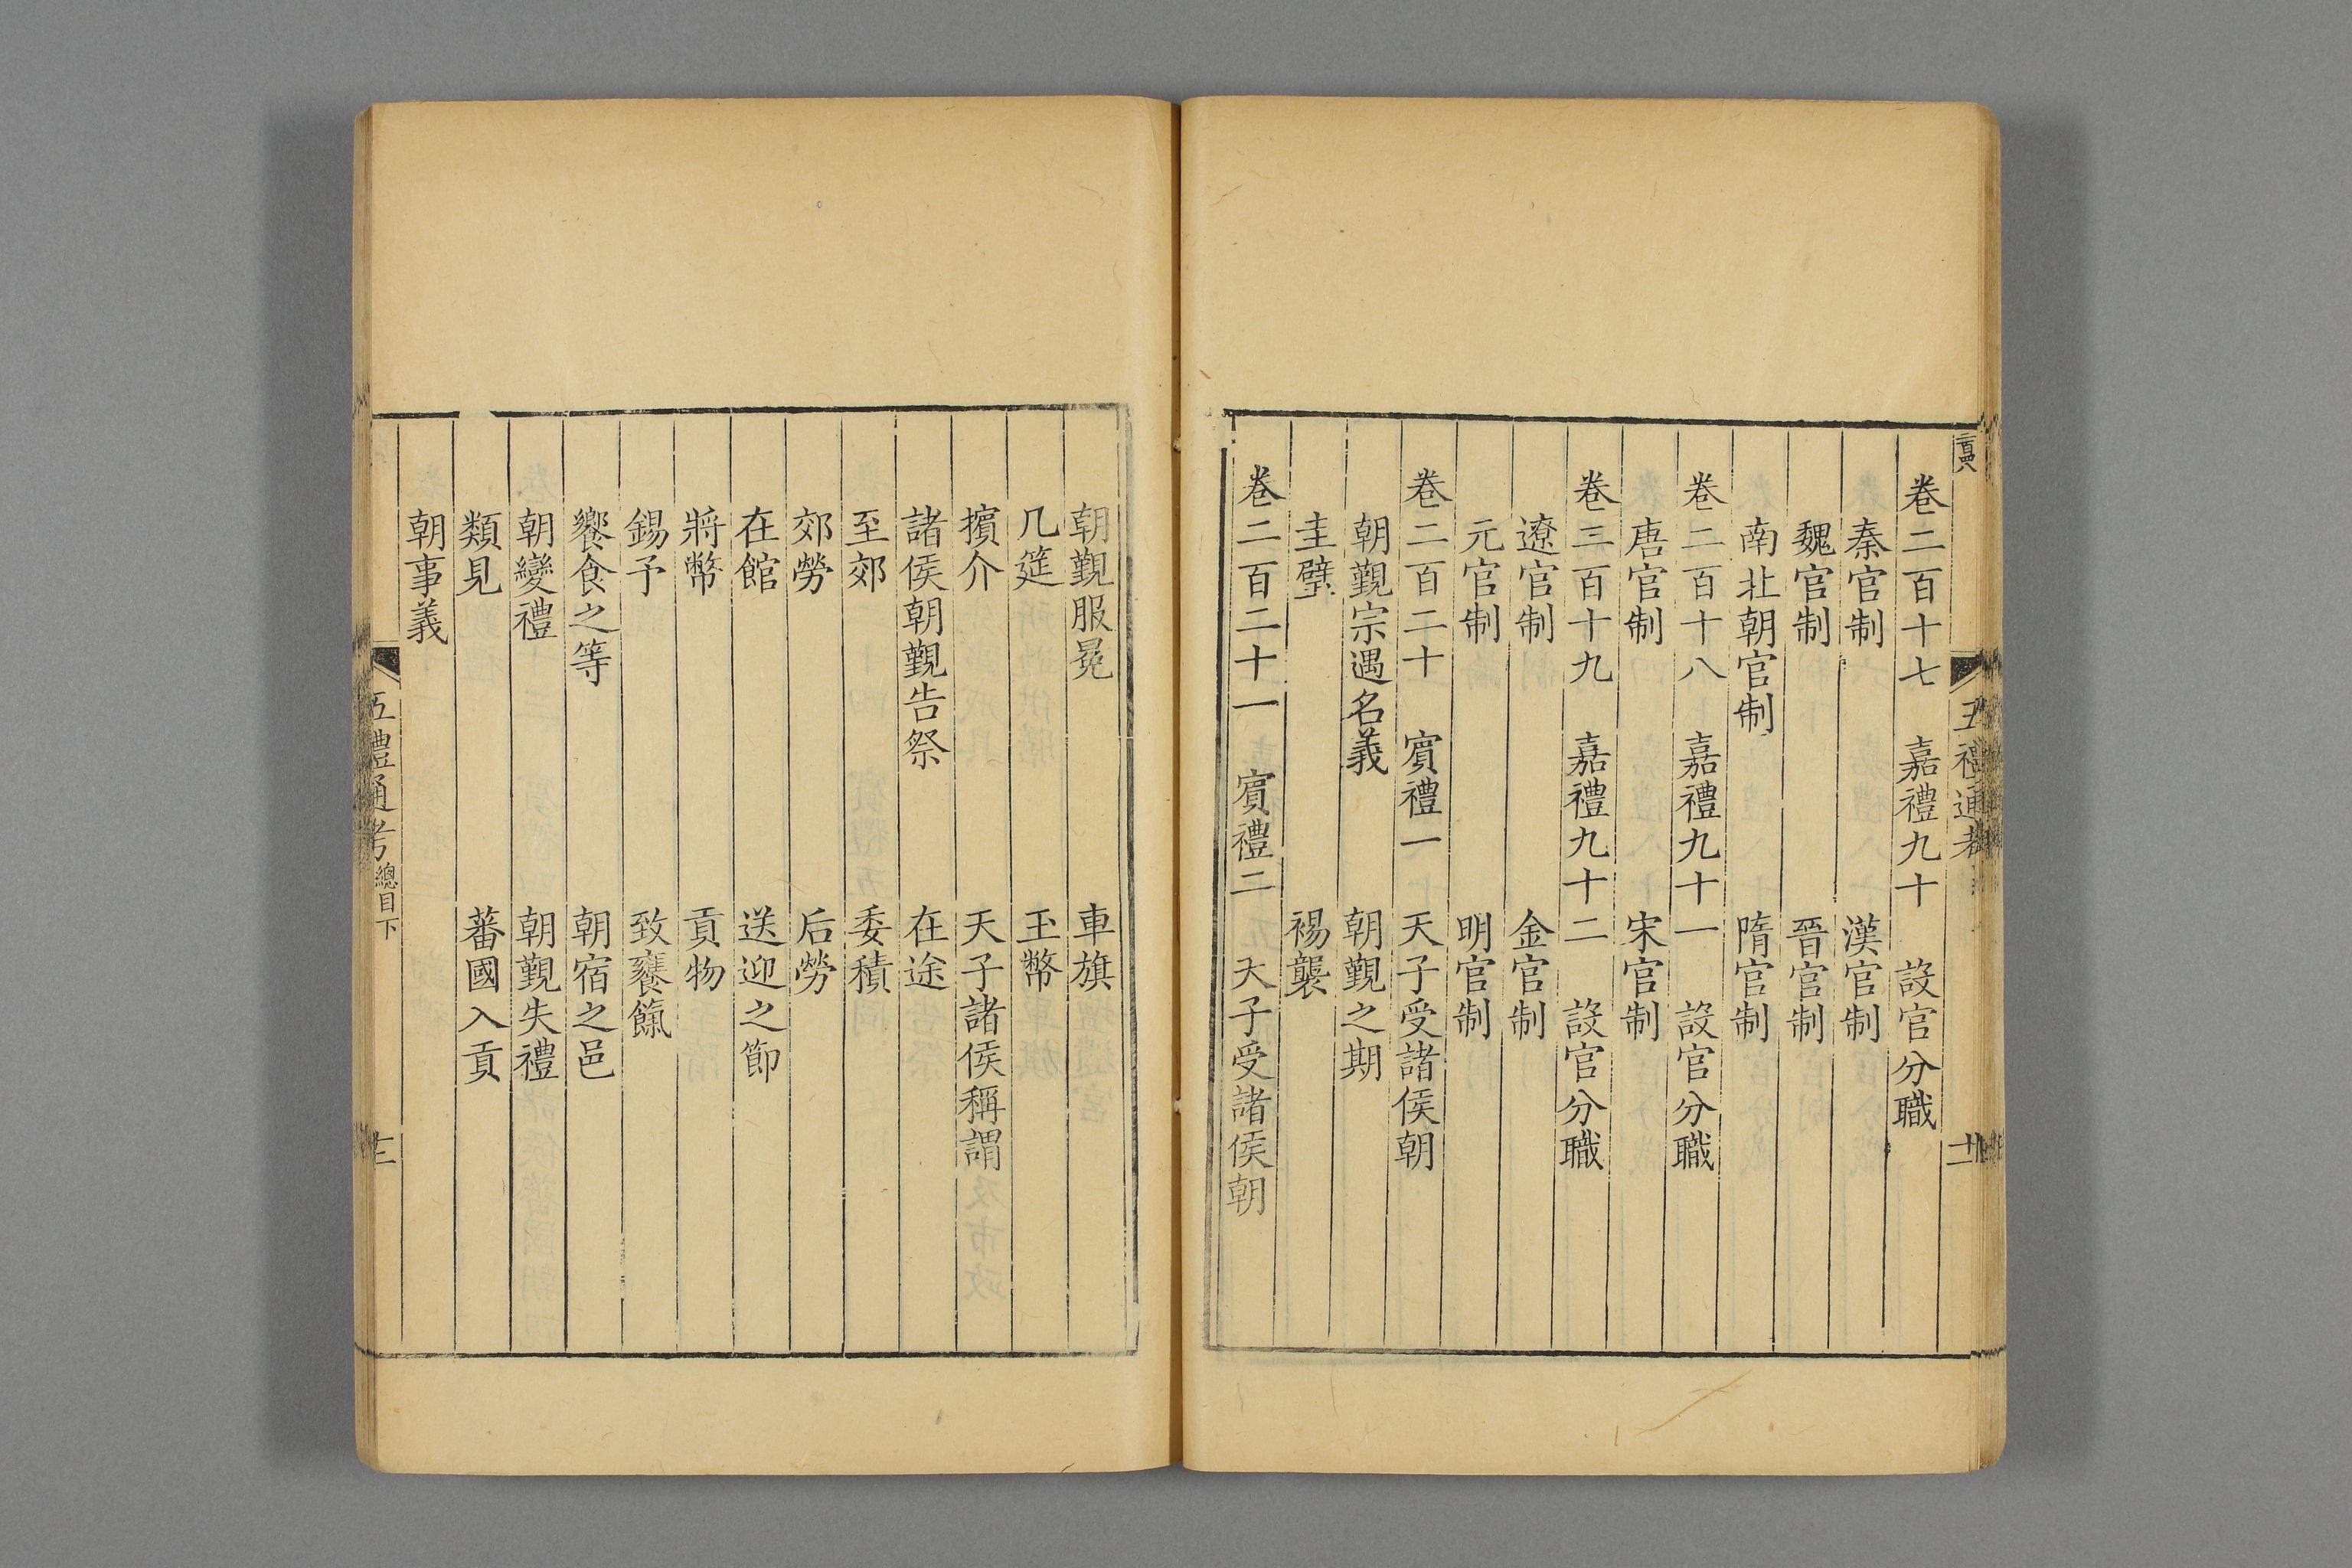 卷二百十七　嘉禮九十　設官分職
秦官制　漢官制
魏官制　晉官制
南北朝官制　隋官制
卷二百十八　嘉禮九十一　設官分職
唐官制　宋官制
卷三百十九　嘉禮九十二　設官分職
遼官制　金官制
元官制　明官制
卷二百二十　賓禮一　天子受諸侯朝
朝覲宗遇名義　朝覲之期
圭璧　裼襲
卷二百二十一　賓禮二　天子受諸侯朝
朝覲服冕　車旗
几筵　玉幣
擯介　天子諸侯稱謂
諸侯朝覲告祭　在途
至郊　委積
郊勞　后勞
在館　送迎之節
將幣　貢物
錫予　致饔餼
饗食之等　朝宿之邑
朝變禮　朝覲失禮
類見　蕃國入貢
朝事義
五禮通考　總目下